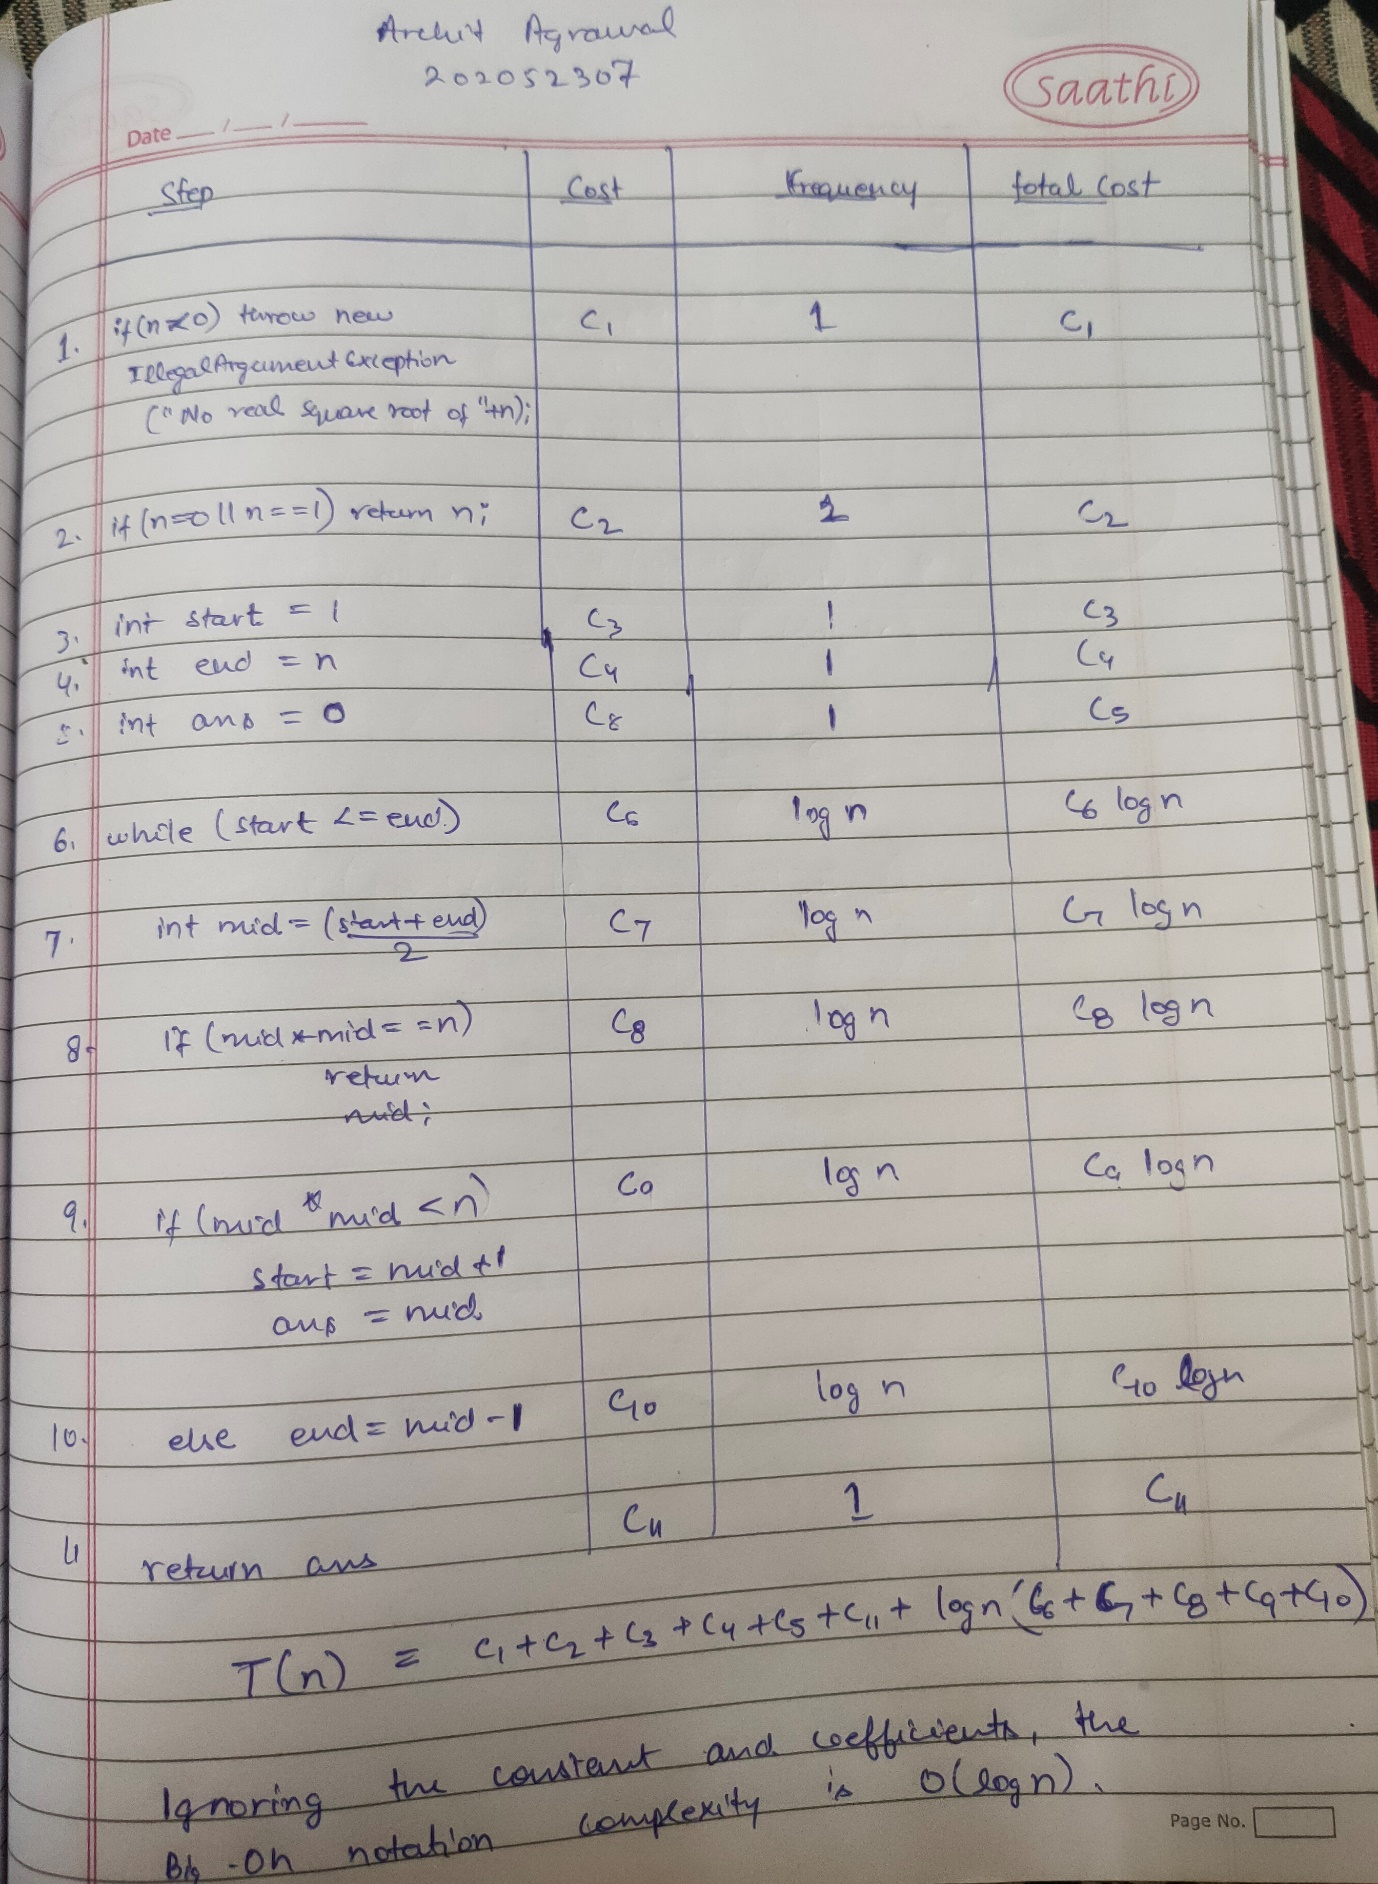 Archit Agrawal
202052307
saathi
Date __/__/____
Step Cost Frequency total Cost
1. if(n<0) throw new C1 1 C1
IllegalArgument Exception
("No real square root of "+n);
2. if (n=0 || n==1) return n; C2 1 C2
3. int start = 1 C3 1 C3
4. int end = n C4 1 C4
5. int ans = 0 C8 1 C5
6. while (start <= end) C6 log n C6 log n
7. int mid = (start + end) C7 log n C7 log n
2
8. if (mid * mid = =n) C8 log n C8 log n
return
mid;
9. if (mid * mid <n) C9 log n C9 log n
start = mid +1
ans = mid
10. else end = mid -1 C10 log n C10 logn
11 return ans C11 1 C11
T(n) = C1+C2+C3+C4+C5+C11+ logn (C6+C7+C8+C9+C10)
Ignoring the constant and coefficients, the
Big -Oh notation complexity is O(logn).
Page No.